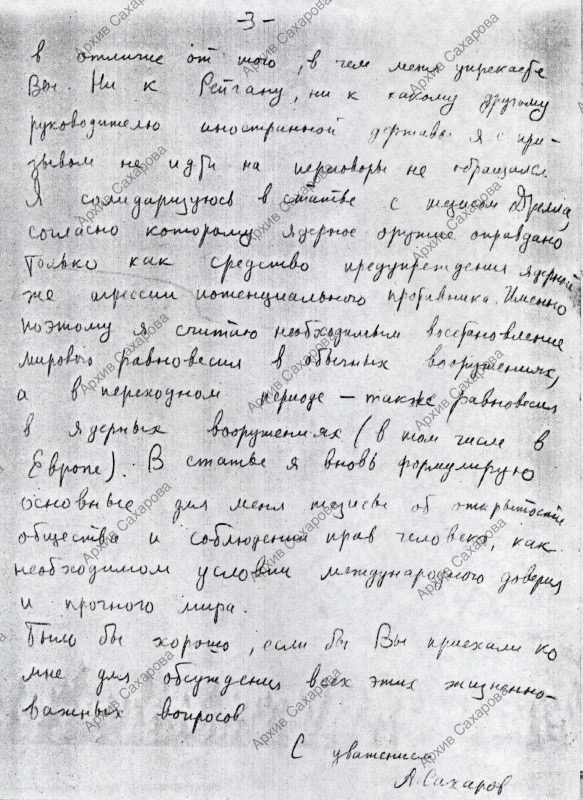 -3-
в отличие от того, в чем меня упрекаете
Вы. Ни к Рейгану, ни к какому другому
руководителю иностранной державы я с при-
зывом не идти на переговоры не обращался.
Я солидаризуюсь в статье с тезисом Дрелла,
согласно которому ядерное оружие оправдано
только как средство предупреждения ядерной
же агрессии потенциального противника. Именно
поэтому я считаю необходимым восстановление
мирового равновесия в обычных вооружениях,
а в переходном периоде – также равновесия
в ядерных вооружениях (в том числе в
Европе). В статье я вновь формулирую
основные для меня тезисы об открытости
общества и соблюдении прав человека, как
необходимом условии международного доверия
и прочного мира.
Было бы хорошо, если бы Вы приехали ко
мне для обсуждения всех этих жизненно-
важных вопросов.
С уважением
А. Сахаров
Архив Сахарова